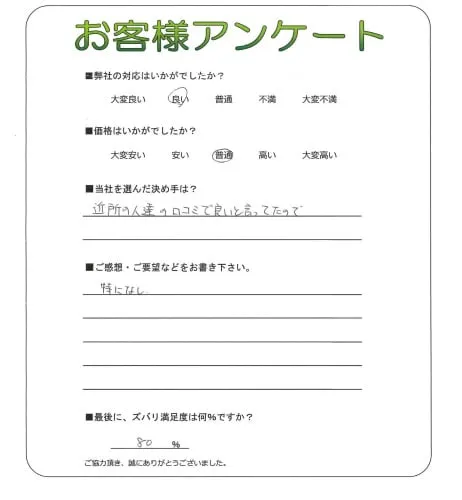 お客様アンケート
■弊社の対応はいかがでしたか？
大変良い 良い 普通 不満 大変不満
■価格はいかがでしたか？
大変安い 安い 普通 高い 大変高い
■当社を選んだ決め手は？
近所の人達の口コミで良いと言ってたので
■ご感想・ご要望などをお書き下さい。
特になし
■最後に、ズバリ満足度は何%ですか？
80 %
ご協力頂き、誠にありがとうございました。